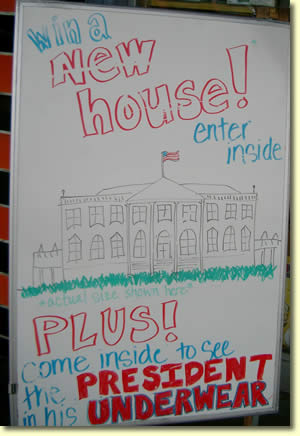 win a
New
house!
enter
inside
*actual size shown here*
PLUS!
come inside to see
the PRESIDENT
in his UNDERWEAR